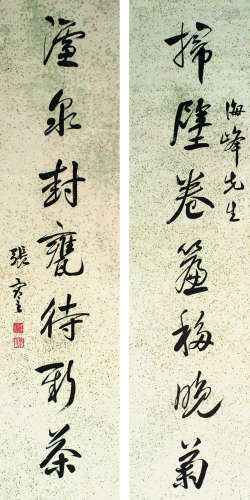 海峰先生
掃壁卷簾移晚菊
濾泉封甕待新茶
張謇